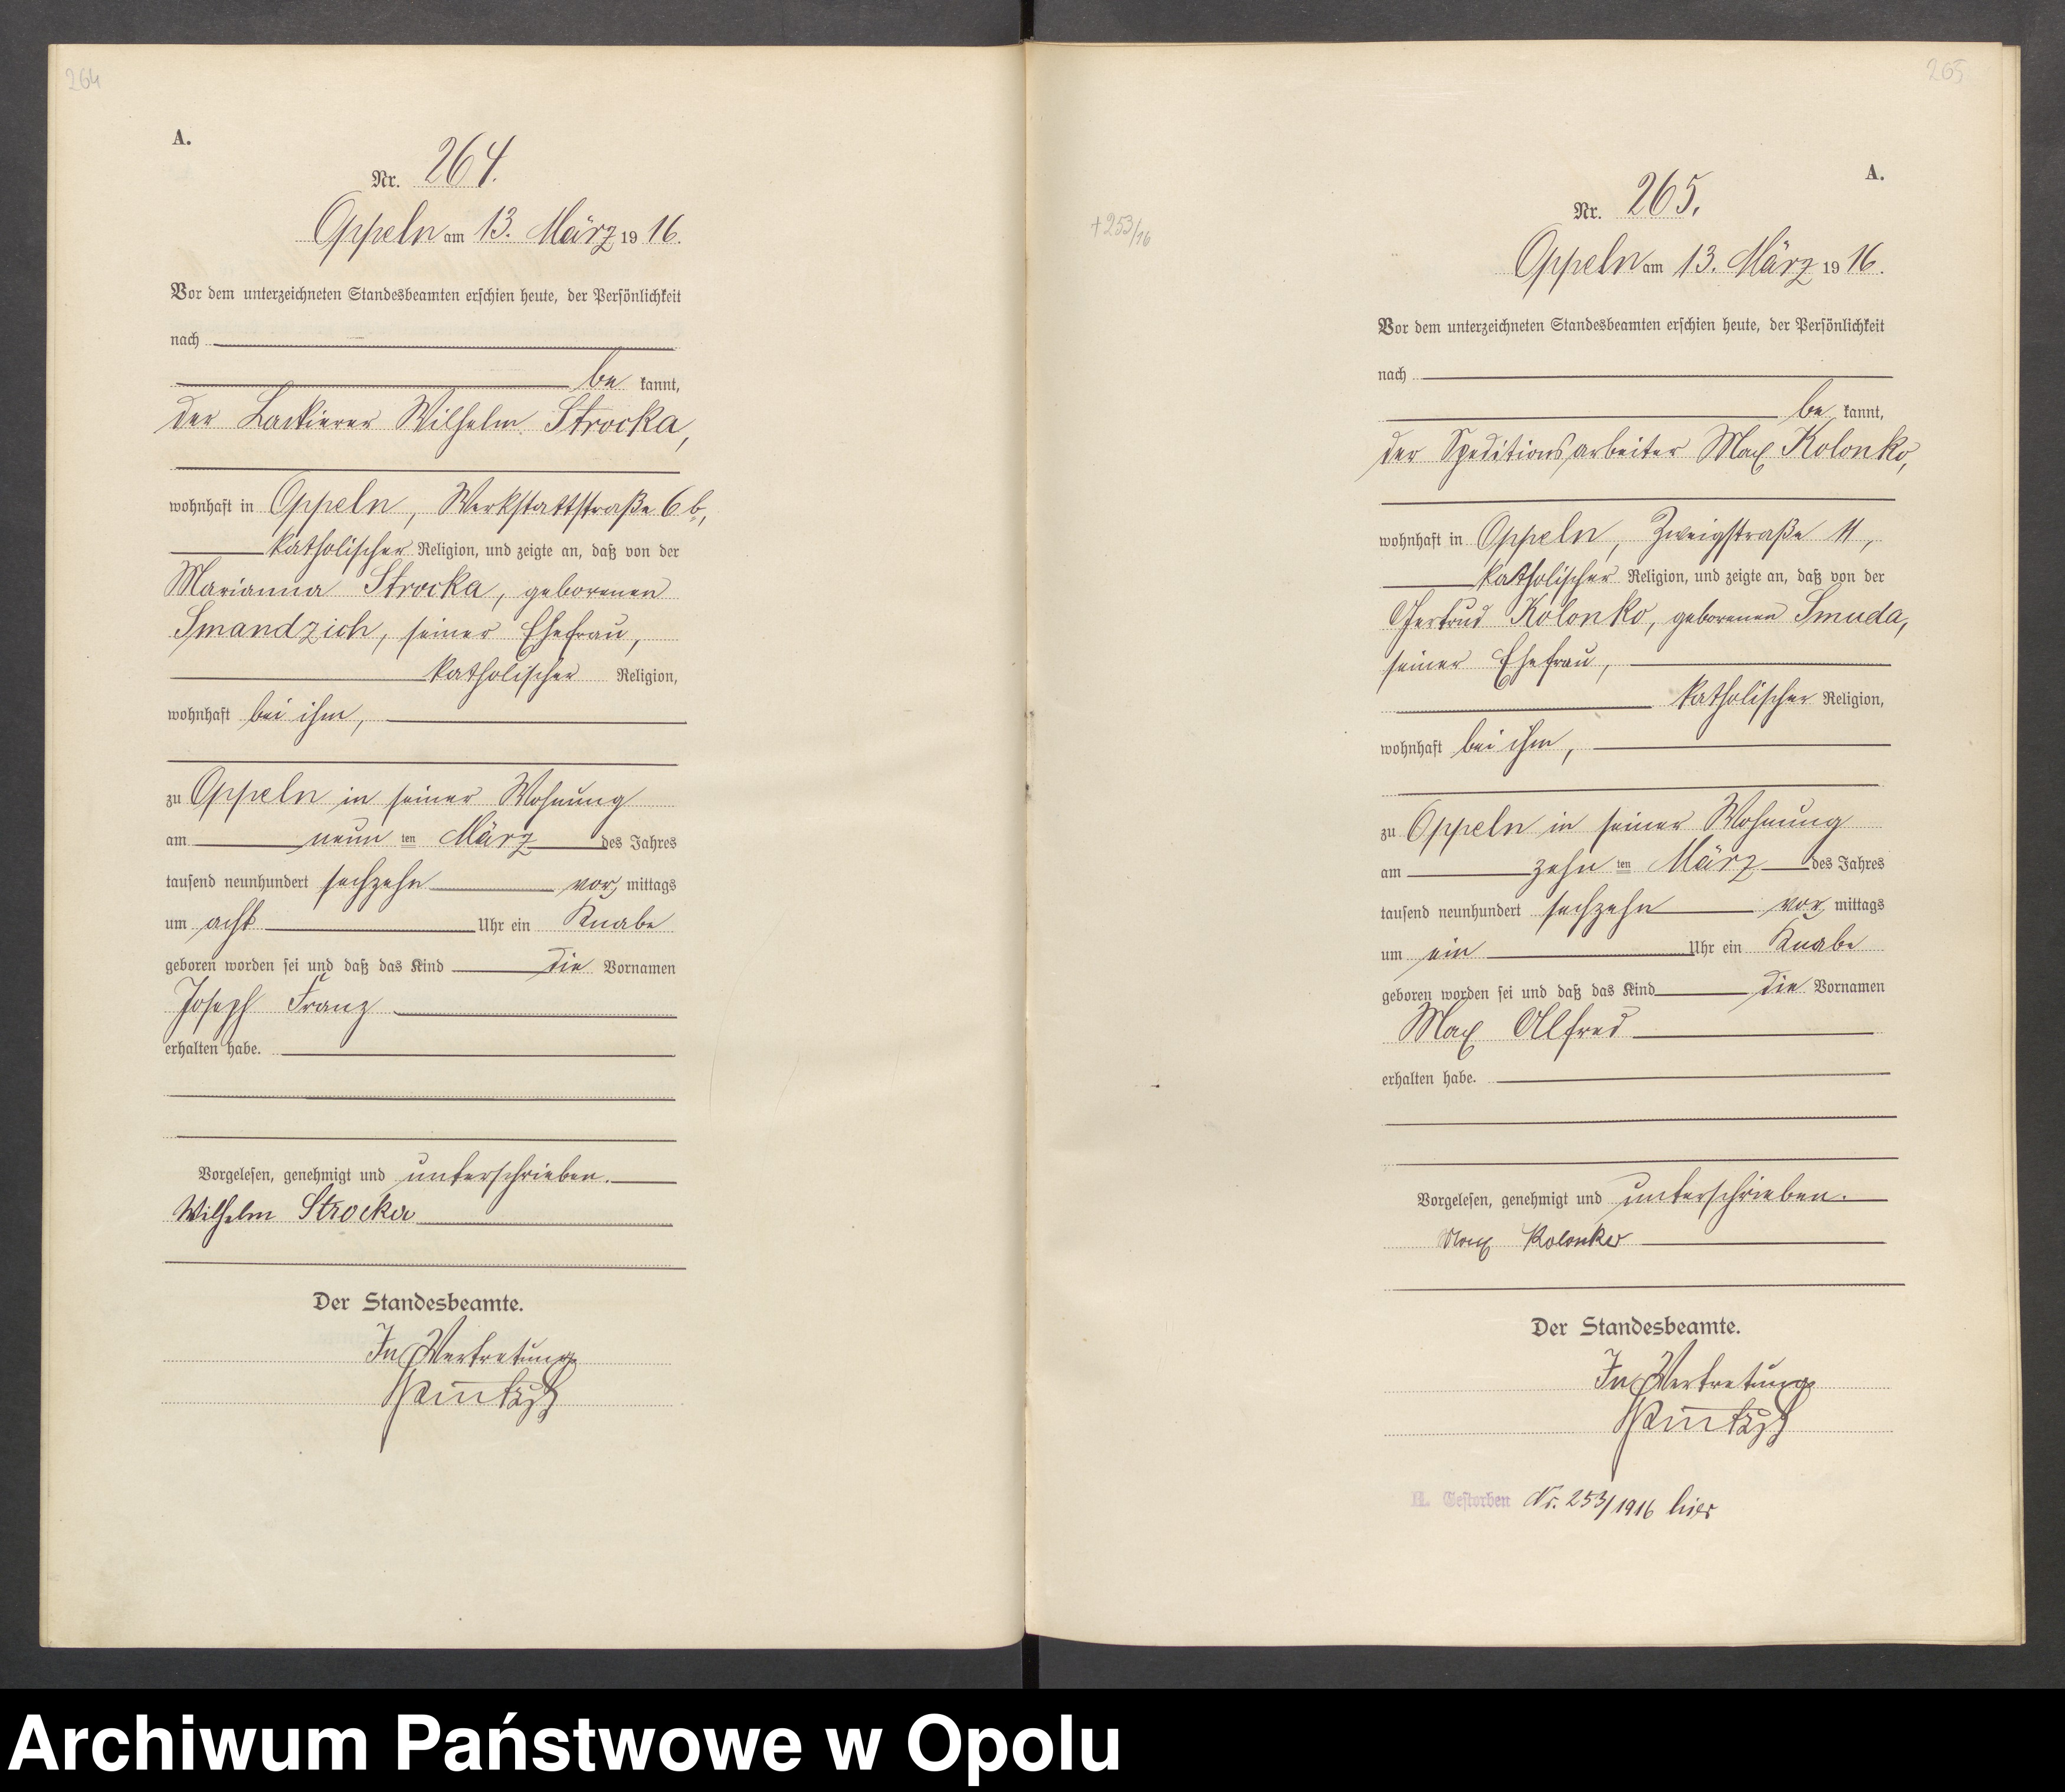 264
A.
Nr. 264.
Oppeln am 13. März 19 16.
Vor dem unterzeichneten Standesbeamten erschien heute, der Persönlichkeit
nach
be kannt,
der Lackierer Wilhelm Strocka,
wohnhaft in Oppeln, Werkstattstraße 6 b,
katholischer Religion, und zeigte an, daß von der
Marianna Strocka, geborenen
Smandzich, seiner Ehefrau,
katholischer Religion,
wohnhaft bei ihm,
zu Oppeln in seiner Wohnung
am neun ten März des Jahres
tausend neunhundert sechzehn vor mittags
um acht Uhr ein Knabe
geboren worden sei und daß das Kind die Vornamen
Joseph Franz
erhalten habe.
Vorgelesen, genehmigt und unterschrieben.
Wilhelm Strocka
Der Standesbeamte.
In Vertretung
265
A.
+253/16
Nr. 265.
Oppeln am 13. März 19 16.
Vor dem unterzeichneten Standesbeamten erschien heute, der Persönlichkeit
nach
be kannt,
der Speditionsarbeiter Max Kolonko,
wohnhaft in Oppeln, Zweigstraße 11,
katholischer Religion, und zeigte an, daß von der
Gertrud Kolonko, geborenen Smuda,
seiner Ehefrau,
katholischer Religion,
wohnhaft bei ihm,
zu Oppeln in seiner Wohnung
am zehn ten März des Jahres
tausend neunhundert sechzehn vor mittags
um ein Uhr ein Knabe
geboren worden sei und daß das Kind die Vornamen
Max Alfred
erhalten habe.
Vorgelesen, genehmigt und unterschrieben.
Max Kolonko
Der Standesbeamte.
In Vertretung
Gestorben Nr. 253/1916 hier
Archiwum Państwowe w Opolu